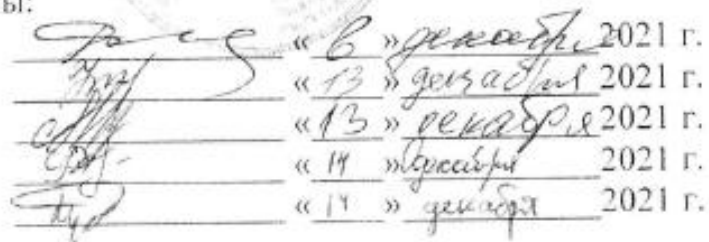 ы:
« 6 » декабря 2021 г.
« 13 » декабря 2021 г.
« 13 » декабря 2021 г.
« 14 » декабря 2021 г.
« 14 » декабря 2021 г.